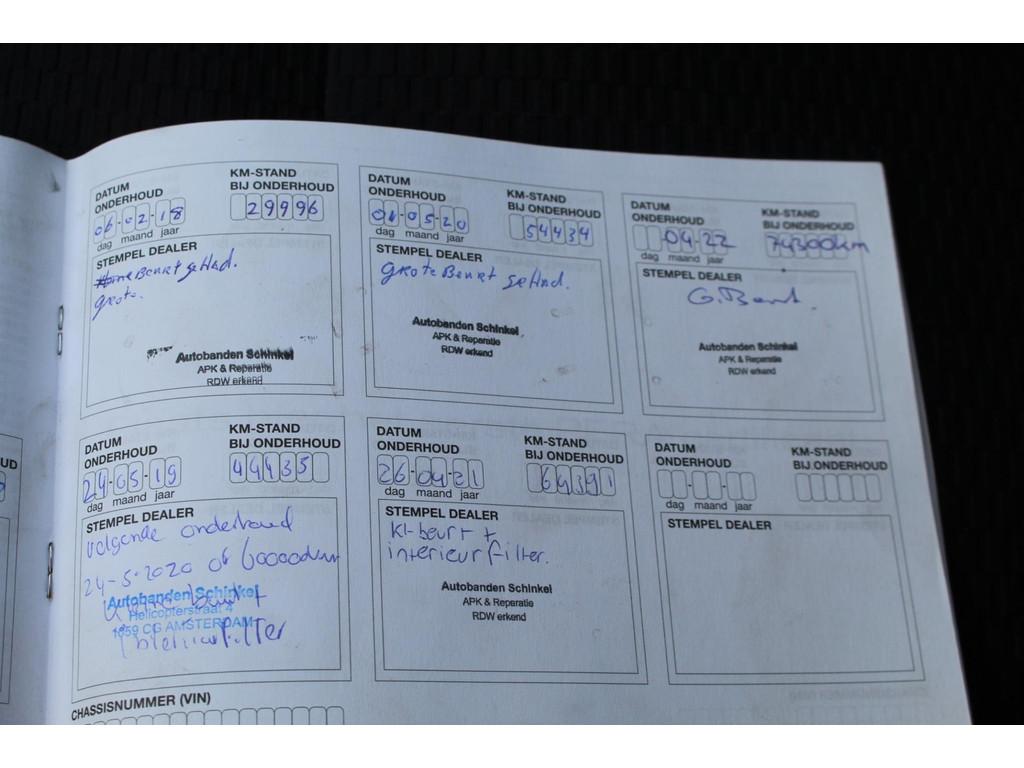 DATUM
ONDERHOUD
06-02-18
dag maand jaar
KM-STAND
BIJ ONDERHOUD
29996
STEMPEL DEALER
Beurt gehad.
grote.
Autobanden Schinkel
APK & Reparatie
RDW erkend
DATUM
ONDERHOUD
01-05-20
dag maand jaar
KM-STAND
BIJ ONDERHOUD
54434
STEMPEL DEALER
grote Beurt gehad.
Autobanden Schinkel
APK & Reparatie
RDW erkend
DATUM
ONDERHOUD
04-22
dag maand jaar
KM-STAND
BIJ ONDERHOUD
74300km
STEMPEL DEALER
G. Beurt.
Autobanden Schinkel
APK & Reparatie
RDW erkend
DATUM
ONDERHOUD
24-05-19
dag maand jaar
KM-STAND
BIJ ONDERHOUD
44435
STEMPEL DEALER
volgende onderhoud
24-5-2020 of 60000km
Autobanden Schinkel
Helicopterstraat 4
1059 CG AMSTERDAM
Interieurfilter
DATUM
ONDERHOUD
26-04-21
dag maand jaar
KM-STAND
BIJ ONDERHOUD
64391
STEMPEL DEALER
Kl-beurt +
interieurfilter.
Autobanden Schinkel
APK & Reparatie
RDW erkend
DATUM
ONDERHOUD
dag maand jaar
KM-STAND
BIJ ONDERHOUD
STEMPEL DEALER
CHASSISNUMMER (VIN)